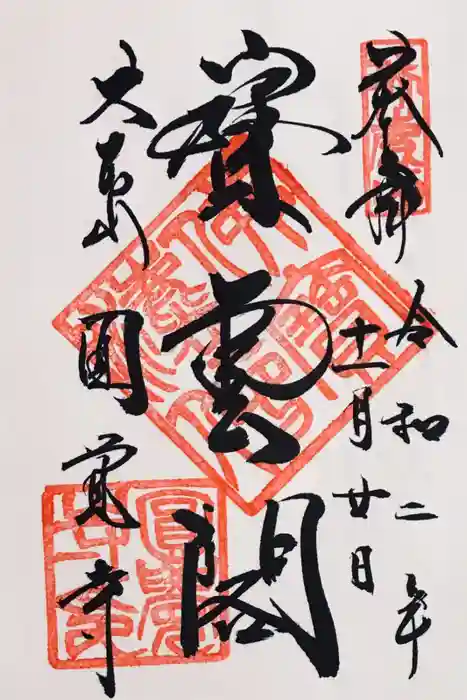 奉拝
令和二年
十一月廿日
寶雲閣
大本山
圓覚寺